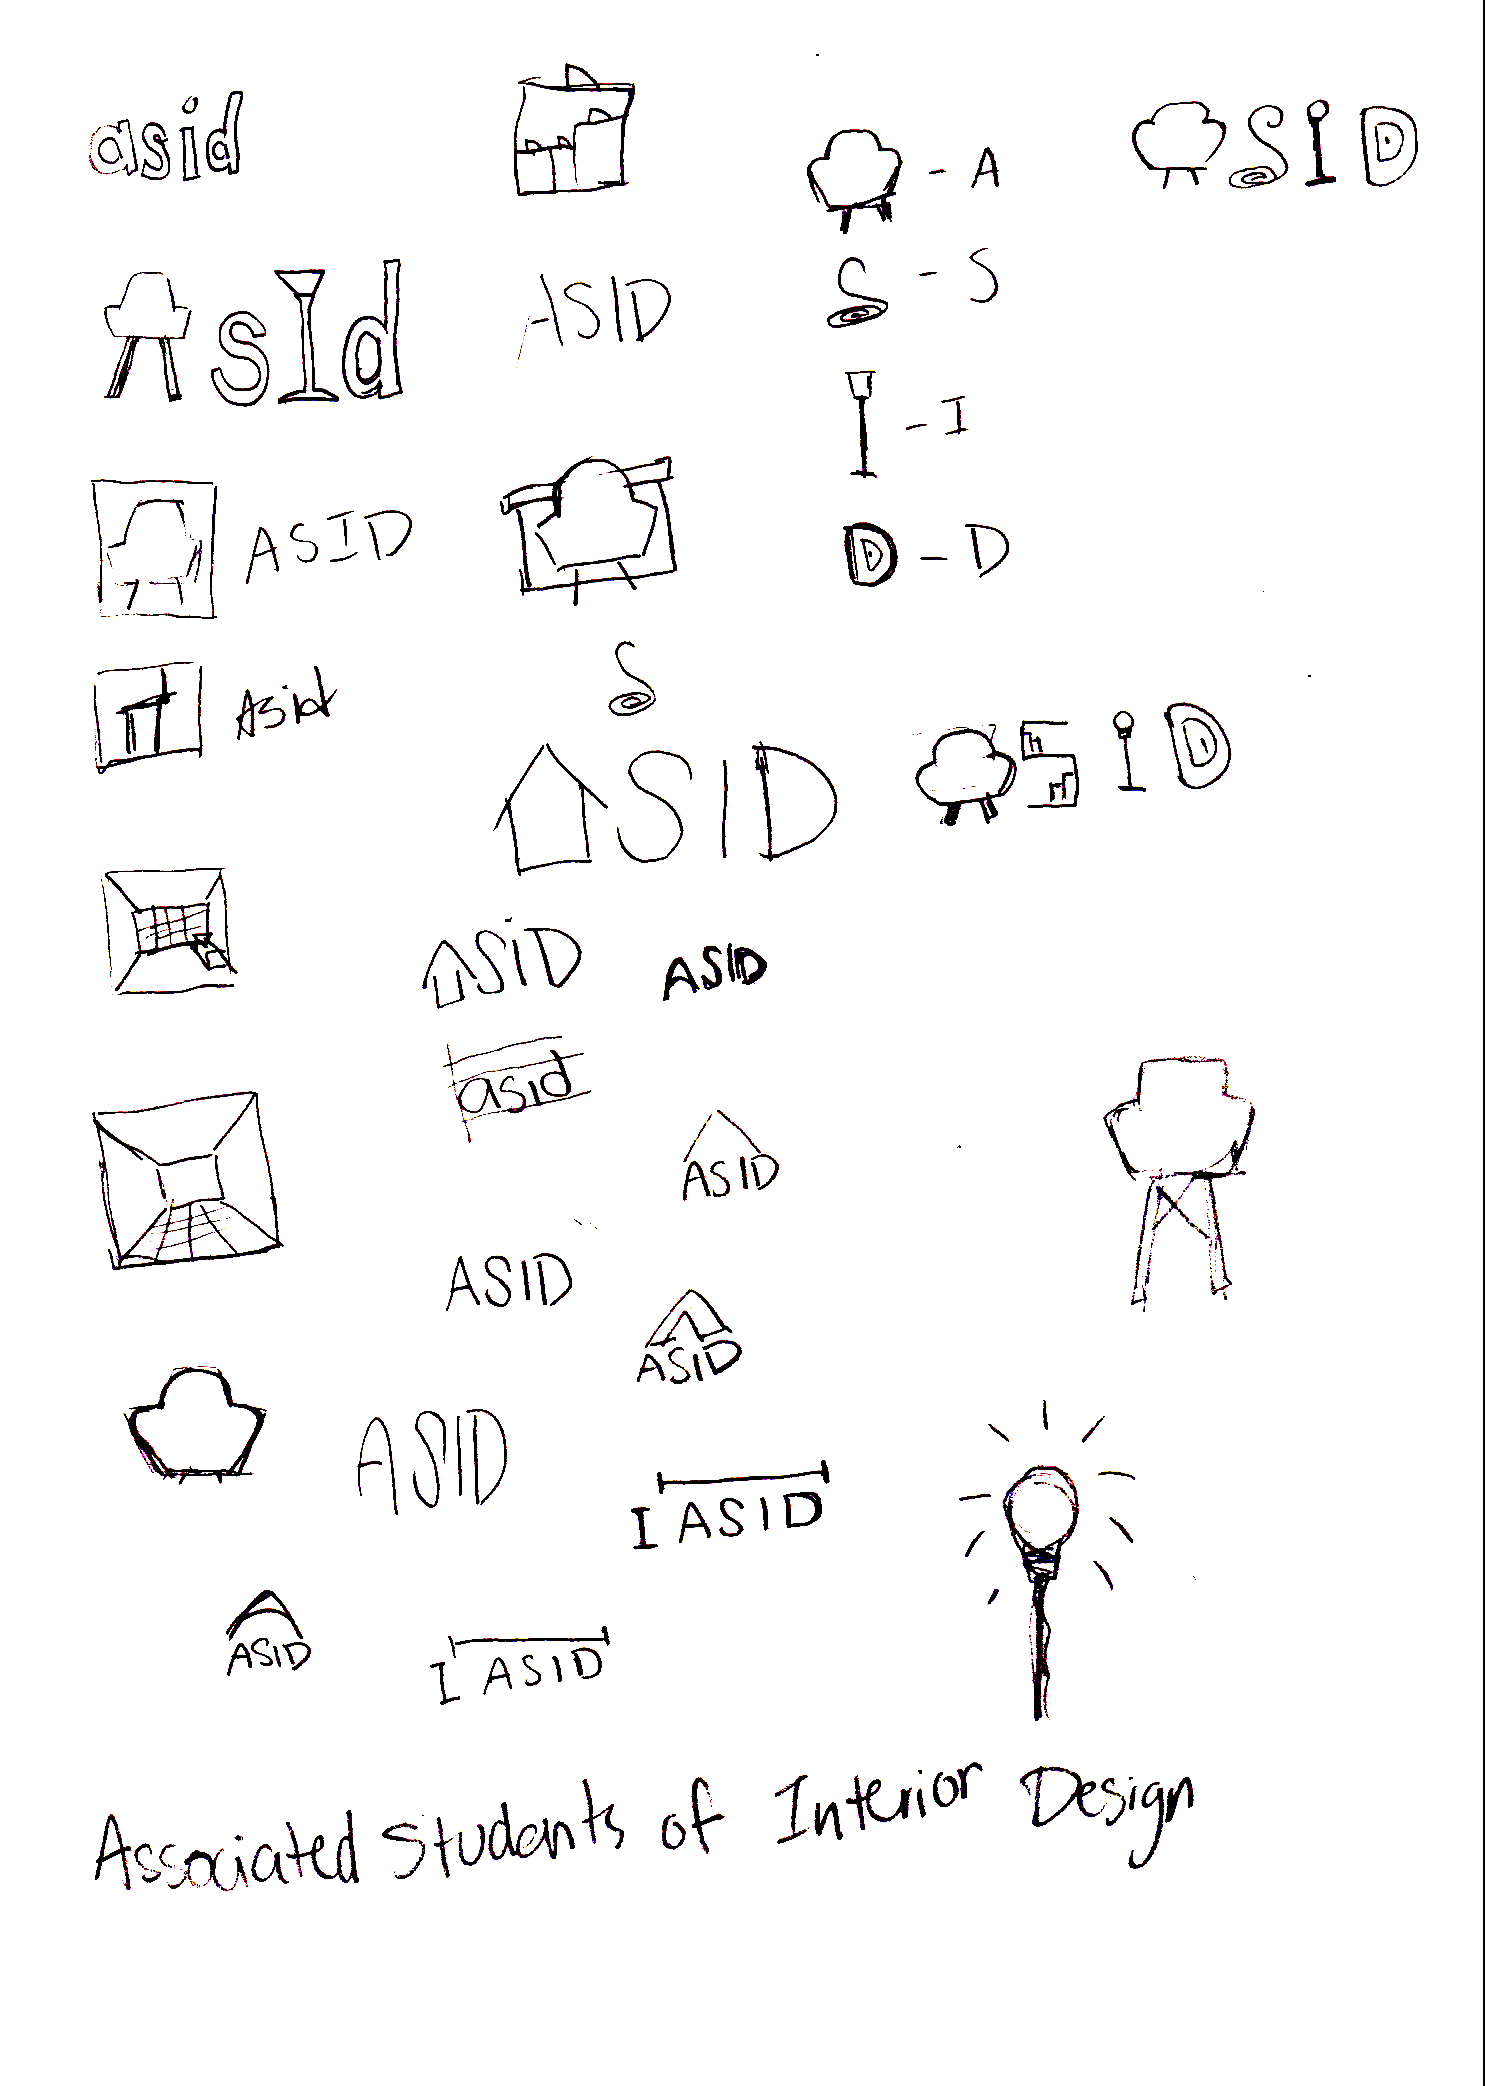 asid
SID
- A
AsId
ASID
- S
- I
ASID
- D
Asid
SID
SID
ASID
SID
asid
ASID
ASID
ASID
ASID
I ASID
ASID
I ASID
Associated Students of Interior Design